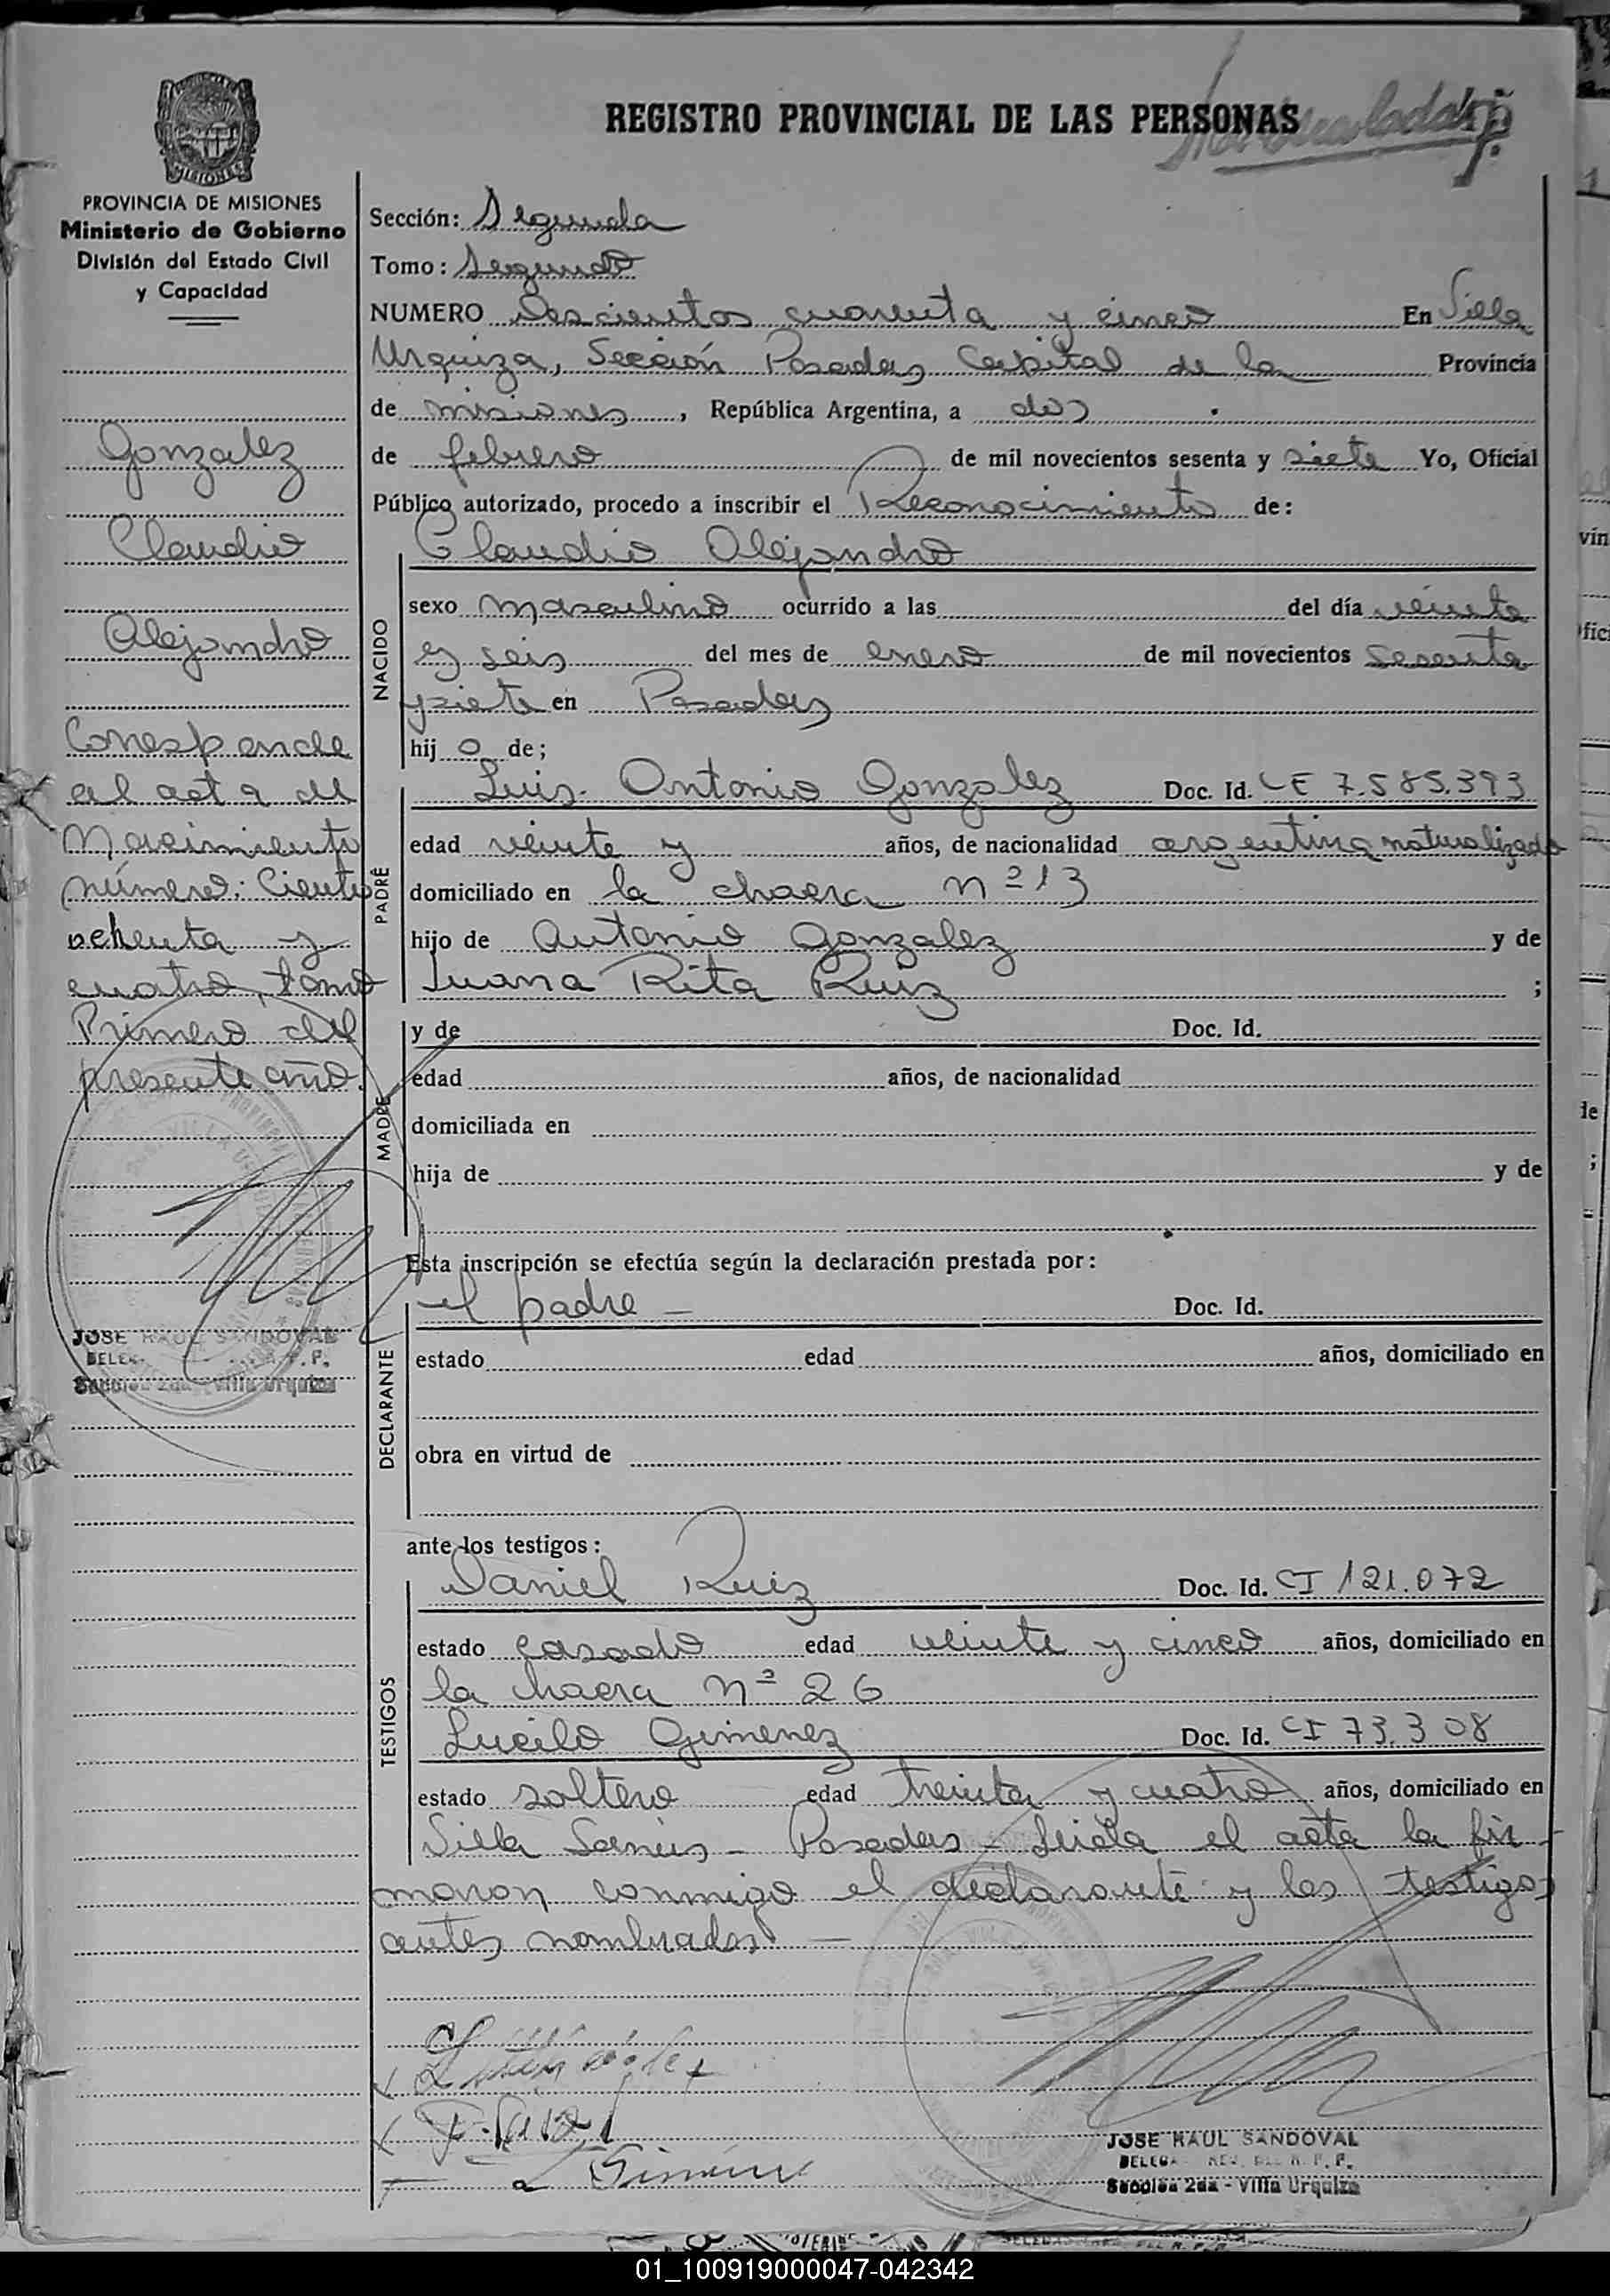 REGISTRO PROVINCIAL DE LAS PERSONAS
MISIONES
PROVINCIA DE MISIONES
Ministerio de Gobierno
División del Estado Civil
y Capacidad
Gonzalez
Claudio
Alejandro
Corresponde
al acta de
Nacimiento
número: Ciento
ochenta y
cuatro, tomo
Primero del
presente año.
JOSE RAUL SANDOVAL
Sección 2da - Villa Urquiza
Sección: Segunda
Tomo: Segundo
NUMERO Doscientos cuarenta y cinco En Villa
Urquiza, Sección Posadas Capital de la Provincia
de misiones, República Argentina, a dos
de febrero de mil novecientos sesenta y siete Yo, Oficial
Público autorizado, procedo a inscribir el Reconocimiento de:
Claudio Alejandro
NACIDO
sexo masculino ocurrido a las del día veinte
y seis del mes de enero de mil novecientos sesenta
y siete en Posadas
hij o de;
PADRE
Luis Antonio Gonzalez Doc. Id. LE 7.585.393
edad veinte y años, de nacionalidad argentino naturalizado
domiciliado en la chacra nº 13
hijo de Antonio Gonzalez y de
Juana Rita Ruiz ;
MADRE
y de Doc. Id.
edad años, de nacionalidad
domiciliada en
hija de y de
Esta inscripción se efectúa según la declaración prestada por:
DECLARANTE
el padre — Doc. Id.
estado edad años, domiciliado en
obra en virtud de
ante los testigos:
TESTIGOS
Daniel Ruiz Doc. Id. CI 121.072
estado casado edad veinte y cinco años, domiciliado en
la chacra nº 26
Lucilo Gimenez Doc. Id. CI 73.308
estado soltero edad treinta y cuatro años, domiciliado en
Villa Sarmis - Posadas - Leida el acta la fir-
maron conmigo el declarante y los testigos
antes nombrados —
JOSE RAUL SANDOVAL
Sección 2da - Villa Urquiza
01_100919000047-042342